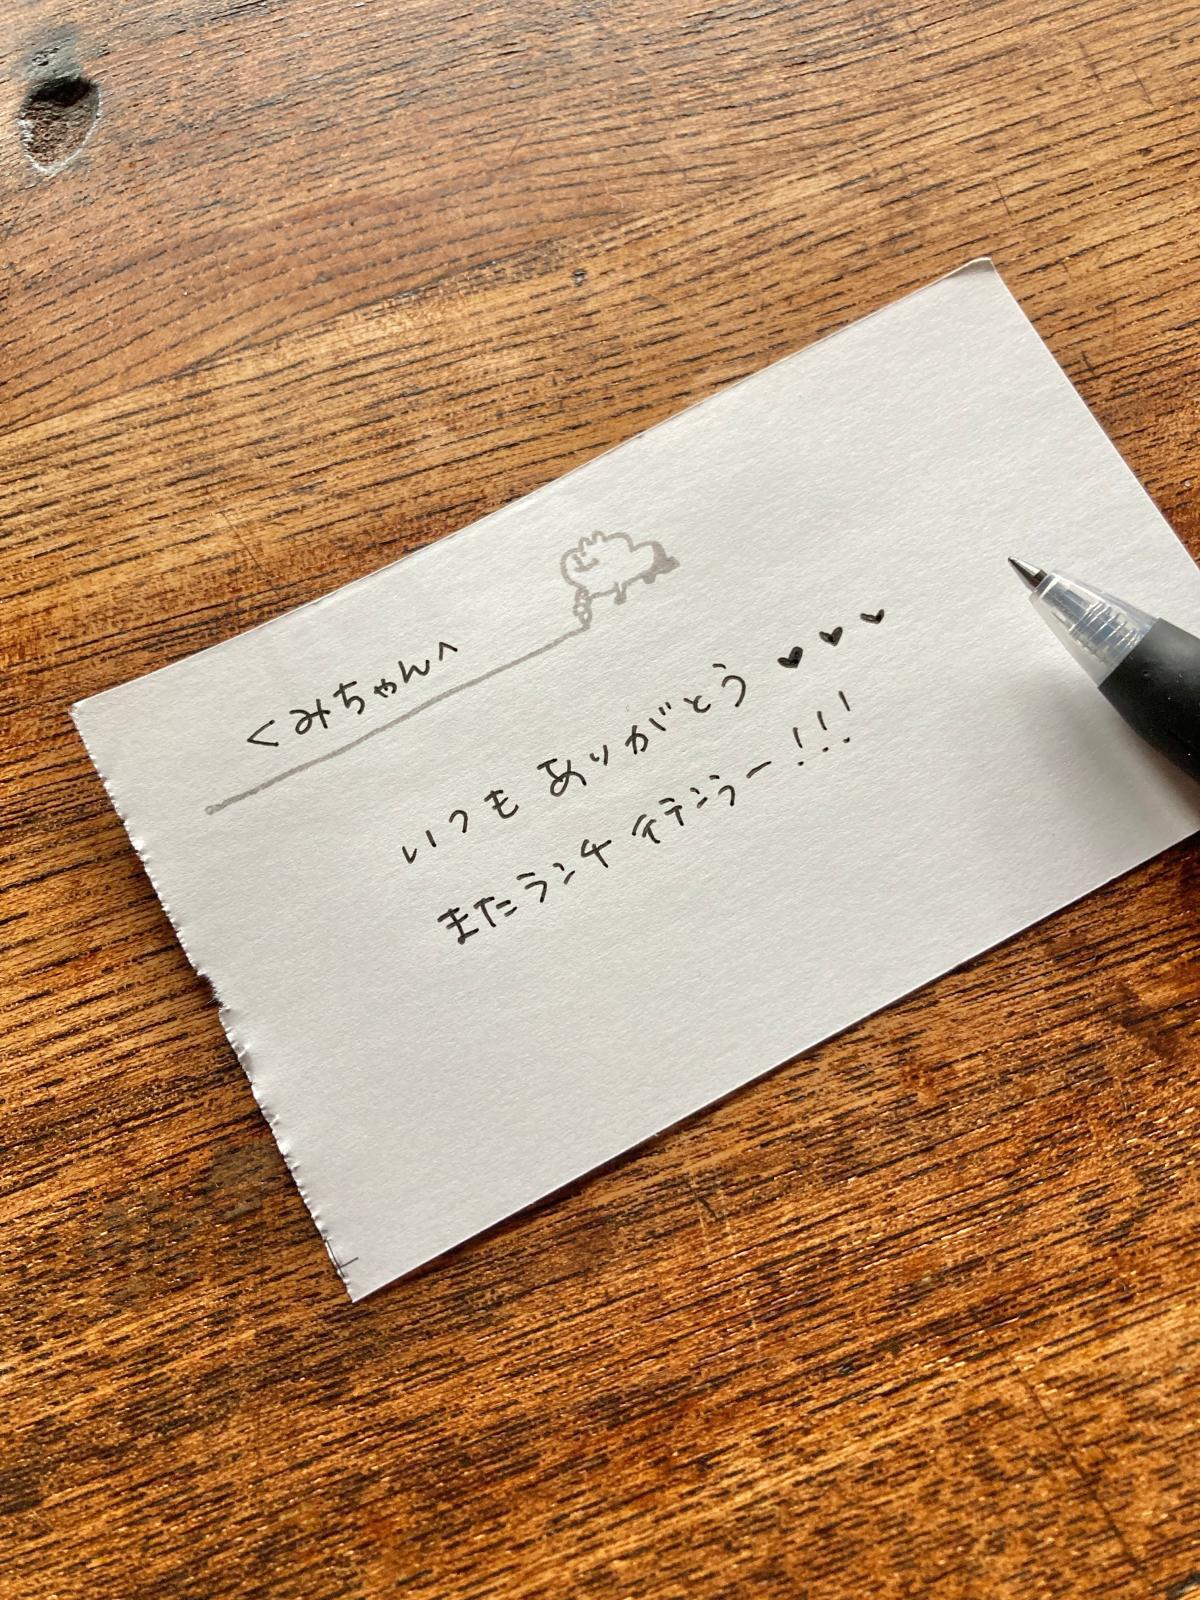 くみちゃんへ
いつも ありがとう ♥♥♥
またランチ行こうー!!!